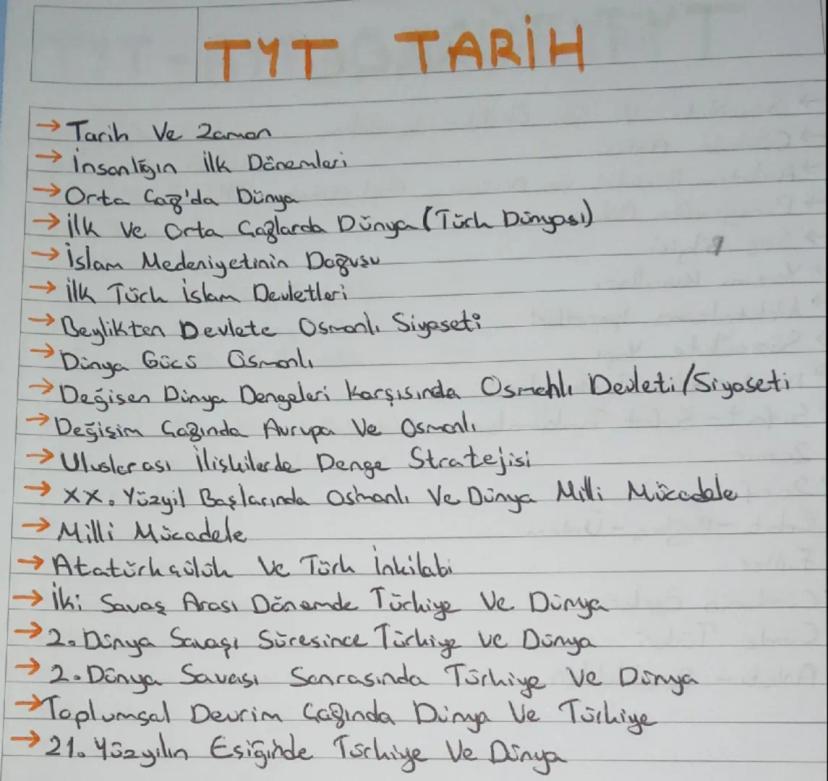 TYT TARİH
→ Tarih Ve Zaman
→ İnsanlığın İlk Dönemleri
→ Orta Çağ'da Dünya
→ İlk Ve Orta Çağlarda Dünya (Türk Dünyası)
→ İslam Medeniyetinin Doğuşu
→ İlk Türk İslam Devletleri
→ Beylikten Devlete Osmanlı Siyaseti
→ Dünya Gücü Osmanlı
→ Değişen Dünya Dengeleri Karşısında Osmanlı Devleti/Siyaseti
→ Değişim Çağında Avrupa Ve Osmanlı
→ Uluslerası İlişkilerde Denge Stratejisi
→ XX. Yüzyil Başlarında Osmanlı Ve Dünya Milli Mücadele
→ Milli Mücadele
→ Atatürkçülük Ve Türk İnkilabi
→ İki Savaş Arası Dönemde Türkiye Ve Dünya
→ 2. Dünya Savaşı Süresince Türkiye Ve Dünya
→ 2. Dünya Savaşı Sonrasında Türkiye Ve Dünya
→ Toplumsal Devrim Çağında Dünya Ve Türkiye
→ 21. Yüzyılın Eşiğinde Türkiye Ve Dünya